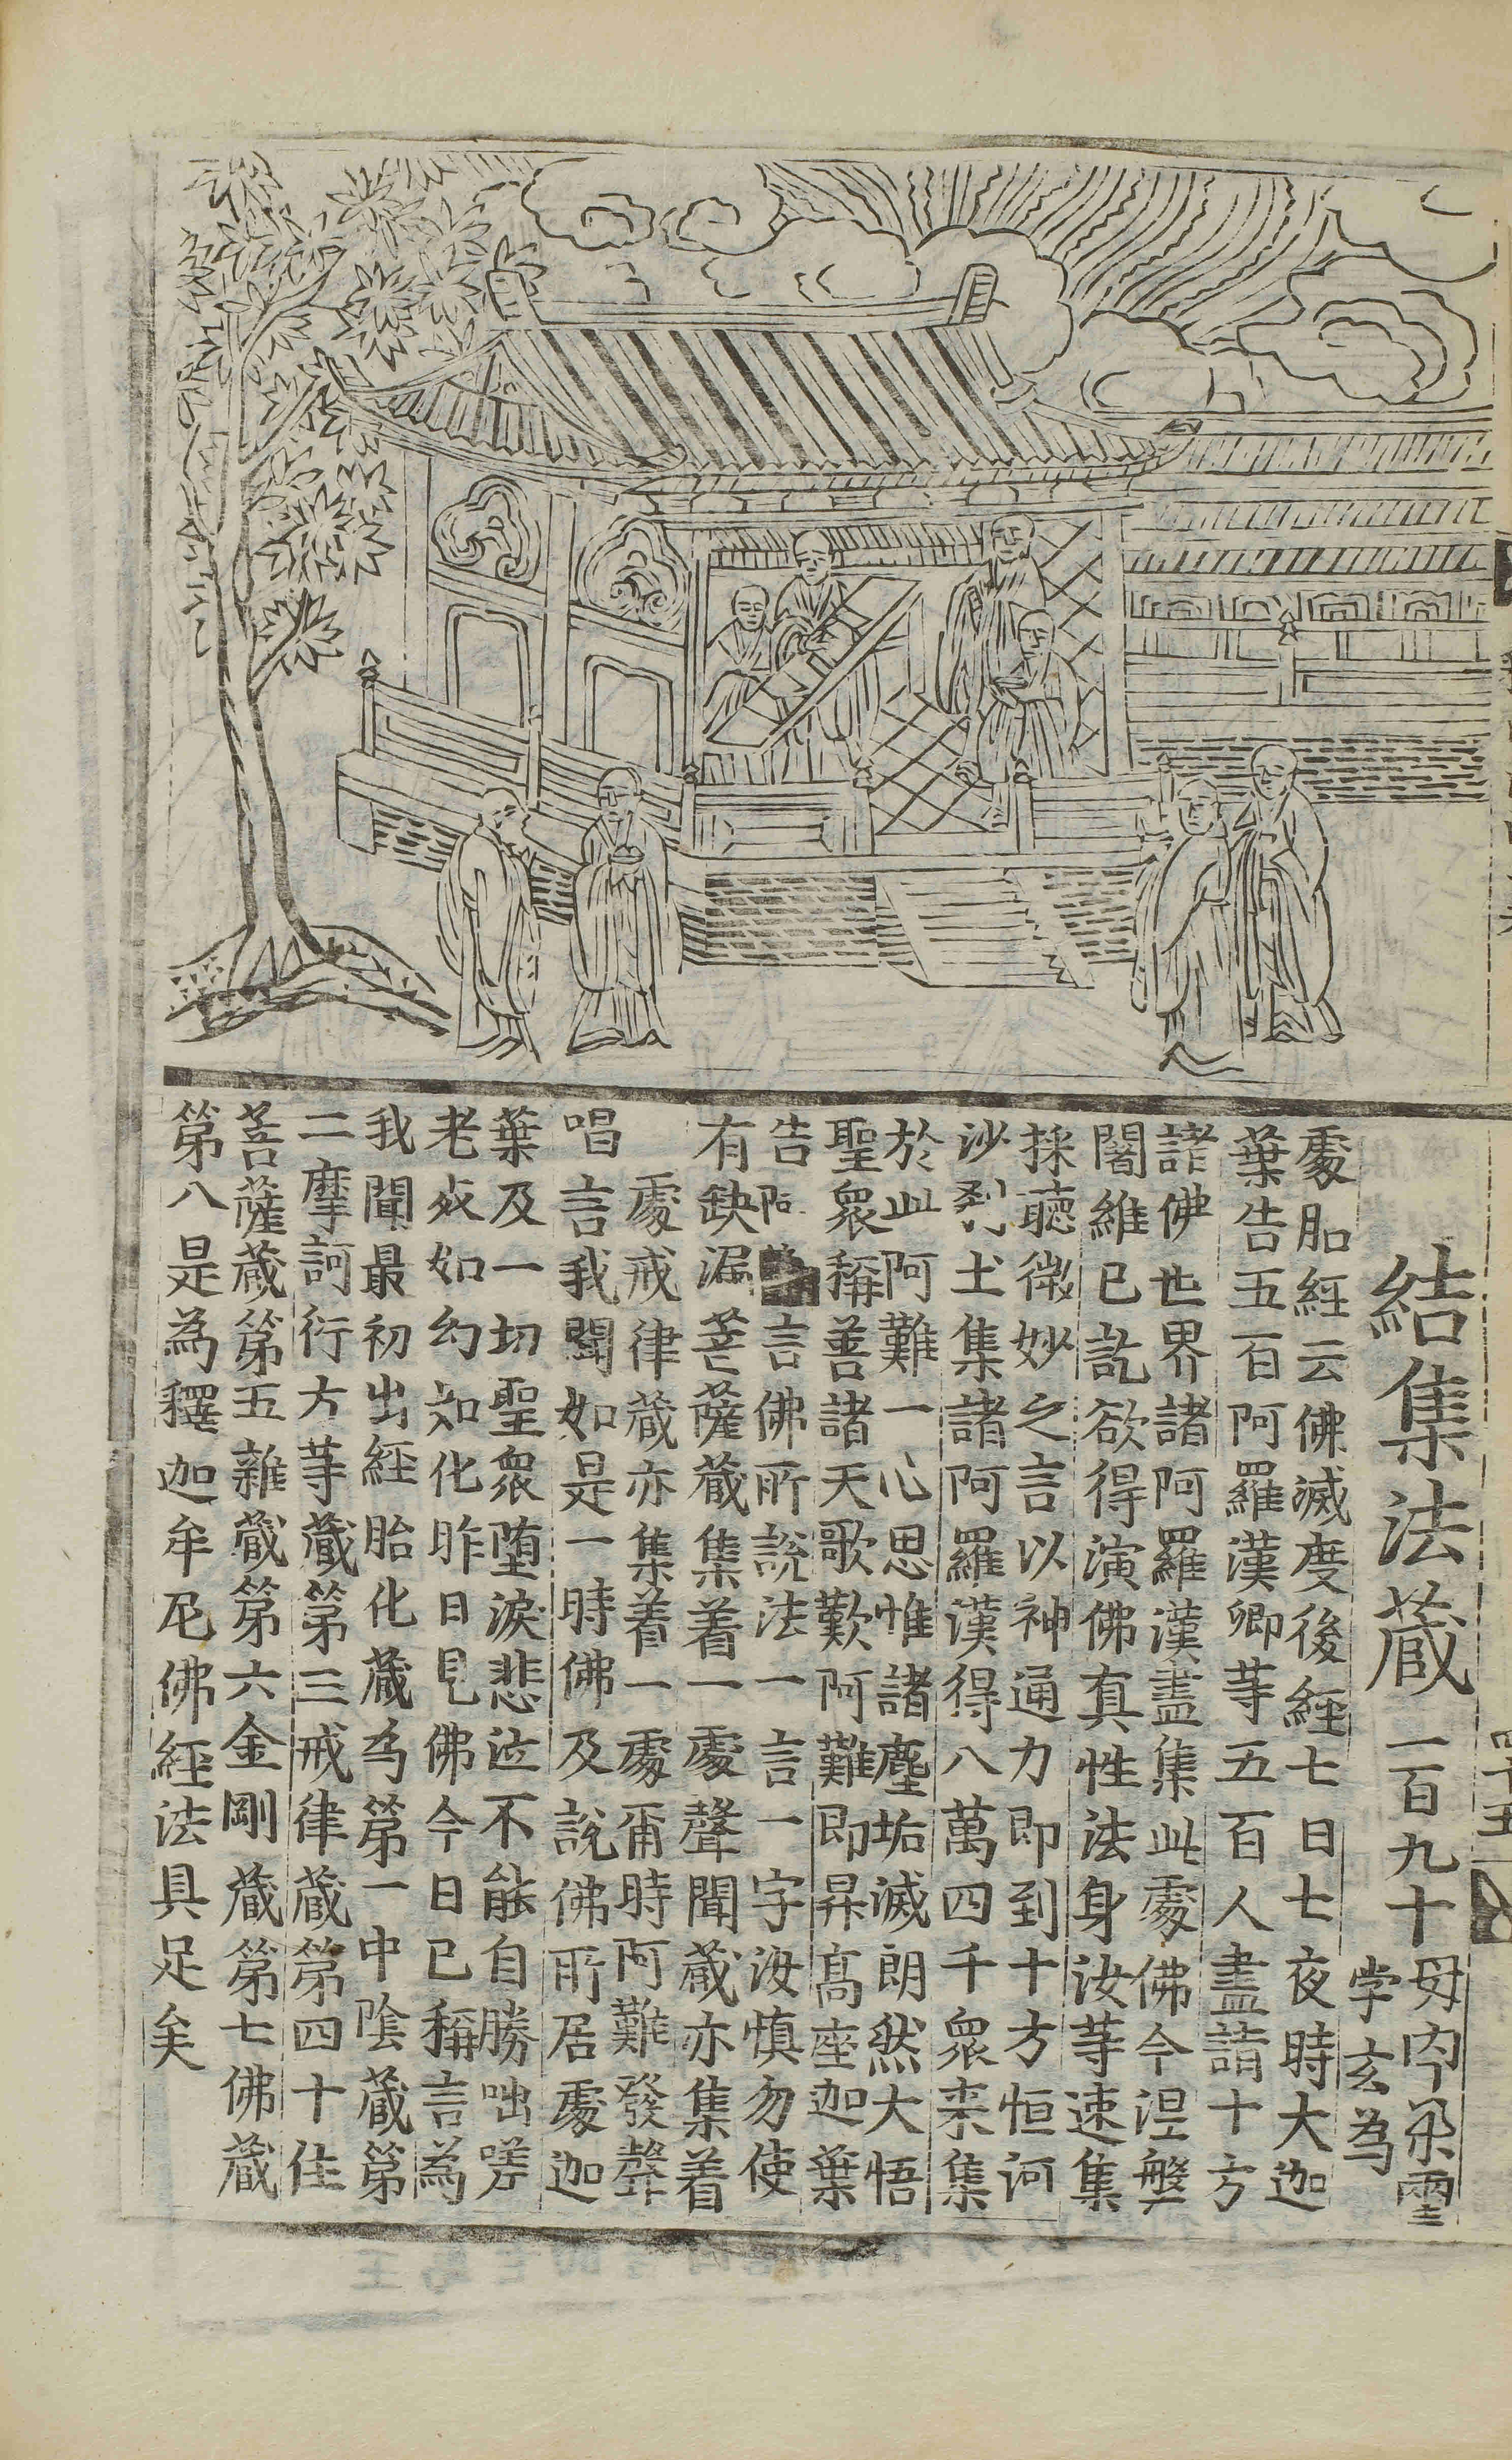 結集法藏 一百九十
處胎經云佛滅度後經七日七夜時大迦
葉告五百阿羅漢卿等五百人盡詣十方
諸佛世界諸阿羅漢盡集此處佛今涅槃
闍維已訖欲得演佛真性法身汝等速集
採聽微妙之言以神通力即到十方恒河
沙刹土集諸阿羅漢得八萬四千衆来集
於此阿難一心思惟諸塵垢滅朗然大悟
聖衆稱善諸天歌歎阿難即昇高座迦葉
告阿言佛所說法一言一字汝慎勿使
有缺漏菩薩藏集着一處聲聞藏亦集着
處戒律藏亦集着一處爾時阿難發聲
唱言我聞如是一時佛及說佛所居處迦
葉及一切聖衆堕淚悲泣不能自勝咄嗟
老死如幻如化昨日見佛今日已稱言為
我聞最初出經胎化藏為第一中陰藏第
二摩訶衍方等藏第三戒律藏第四十住
菩薩藏第五雜藏第六金剛藏第七佛藏
第八是為釋迦牟尼佛經法具足矣